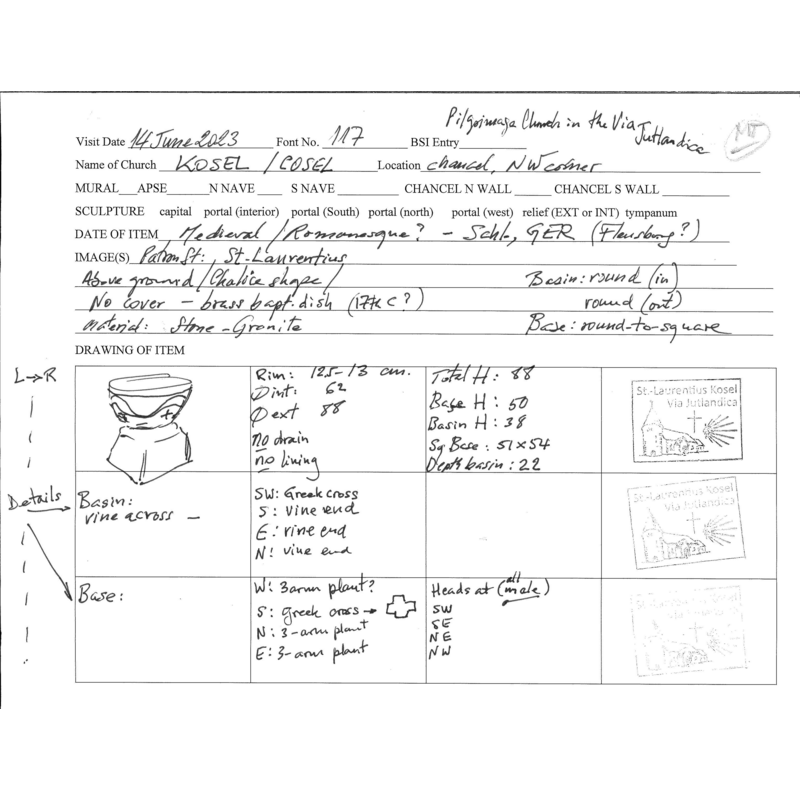 Pilgrimage Church in the Via Jutlandica
MT
Visit Date 14 June 2023 Font No. 117 BSI Entry
Name of Church KOSEL / COSEL Location chancel, NW corner
MURAL APSE N NAVE S NAVE CHANCEL N WALL CHANCEL S WALL
SCULPTURE capital portal (interior) portal (South) portal (north) portal (west) relief (EXT or INT) tympanum
DATE OF ITEM Medieval / Romanesque? - Schl., GER (Flensburg?)
IMAGE(S) Patron St: St-Laurentius
Above ground / Chalice shape / Basin: round (in)
No cover - brass bapt. dish (17th C?) round (out)
Material: Stone - Granite Base: round-to-square
DRAWING OF ITEM
L→R
Rim: 12.5-13 cm.
Ø int: 62
Ø ext 88
no drain
no lining
Total H: 88
Base H: 50
Basin H: 38
Sq Base: 51 x 54
Depth basin: 22
St.-Laurentius Kosel
Via Jutlandica
Details
Basin:
vine across -
SW: Greek cross
S: vine end
E: vine end
N: vine end
St.-Laurentius Kosel
Via Jutlandica
Base:
W: 3 arm plant?
S: Greek cross →
N: 3-arm plant
E: 3-arm plant
Heads at (all male)
SW
SE
NE
NW
St.-Laurentius Kosel
Via Jutlandica